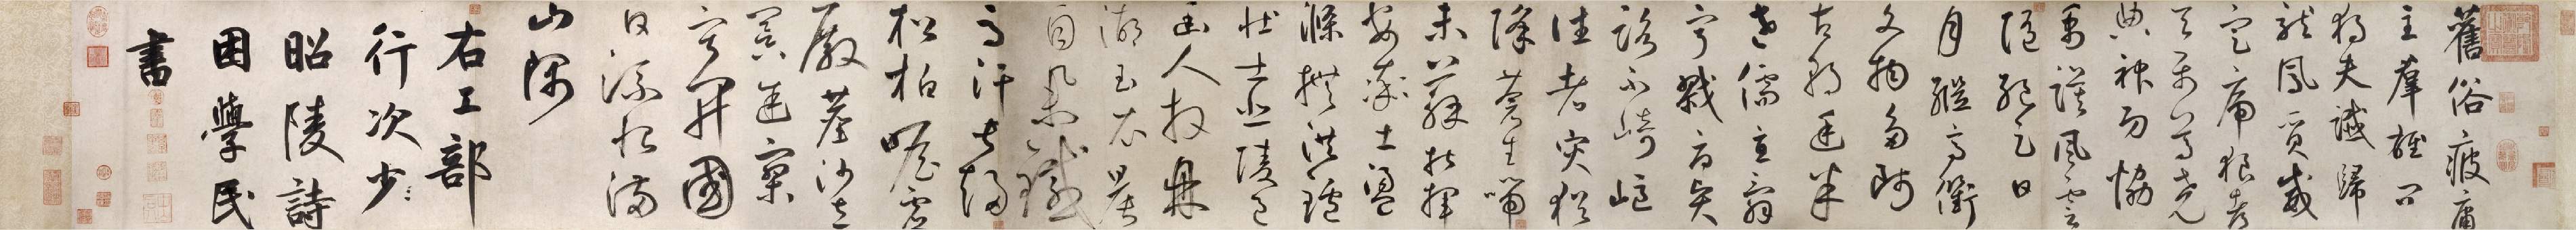 舊俗疲庸
主羣雄問
獨夫讖歸
龍鳳質威
定虎狼都
天屬尊堯
典神功協
禹謨風雲
隨絕足日
月繼高衢
文物多師
古朝廷半
老儒直辭
寧戮辱賢
路不崎嶇
往者災猶
降蒼生喘
未蘇指揮
安率土盪
滌撫洪鑪
壯士悲陵邑
幽人拜鼎
湖玉衣晨
自舉鐵
馬汗常趨
松柏瞻虛
殿塵沙立
冥途寂
寥開國
日流恨滿
山隅
右工部
行次少〻
昭陵詩
困學民
書